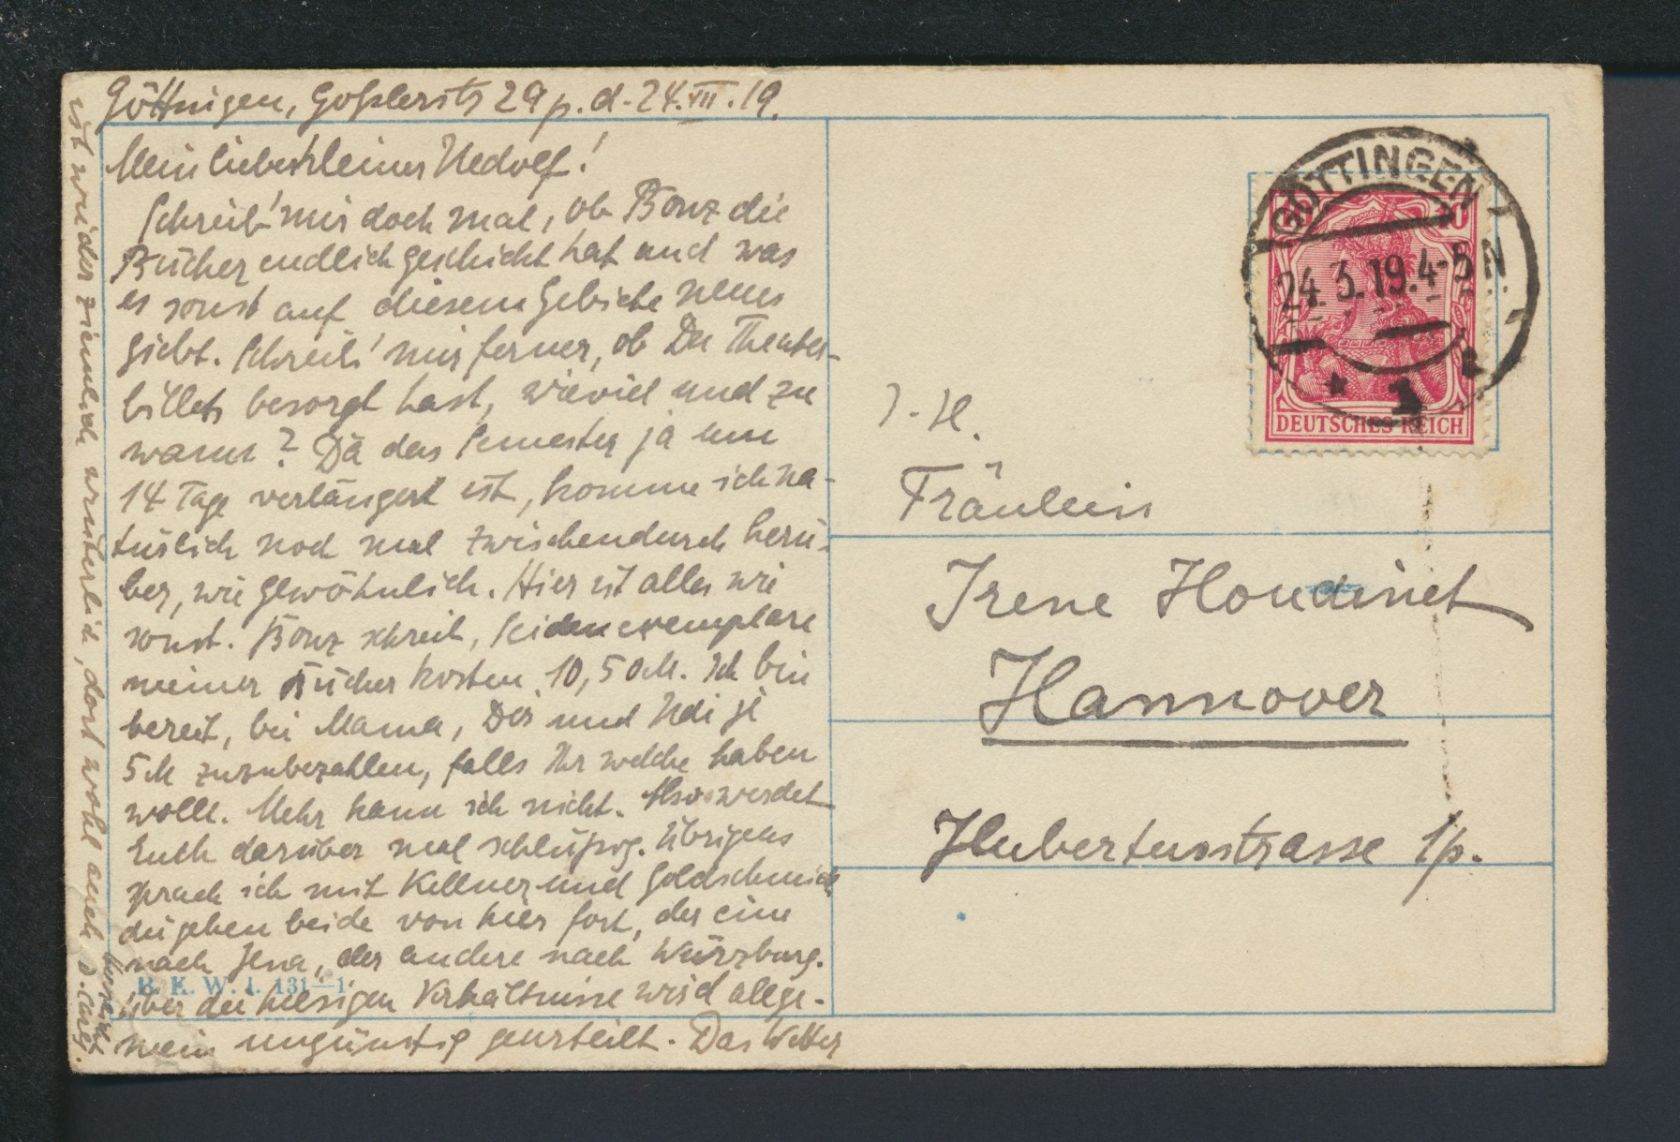 Göttingen, Goßlerstr 29 p. d. 24.III.19.
Mein lieber kleiner Nedolf!
Schreib' mir doch mal, ob Bonz die
Bücher endlich geschickt hat und was
es sonst auf diesem Gebiete neues
giebt. Schreib' mir ferner, ob Du Theater-
billets besorgt hast, wieviel und zu
wann? Da das Semester ja um
14 Tage verlängert ist, komme ich na-
türlich noch mal zwischendurch herü-
ber, wie gewöhnlich. Hier ist alles wie
sonst. Bonz schreib, Seidenexemplare
meiner Bücher kosten 10,50 M. Ich bin
bereit, bei Mama, Dir und Udi je
5 M zuzubezahlen, falls Ihr welche haben
wollt. Mehr kann ich nicht. Also werdet
Euch darüber mal schlüssig. Übrigens
sprach ich mit Kellner und Goldschmidt
die gehen beide von hier fort, der eine
nach Jena, der andere nach Würzburg.
Über die hiesigen Verhältnisse wird allge-
mein ungünstig geurteilt. Das Wetter
ist wieder ziemlich winterlich, dort wohl auch
Herzlichst
D. Carl.
B. K. W. I. 131-1
GÖTTINGEN
24. 3. 19. 4-5 N.
* 1
10
DEUTSCHES REICH
Fräulein
Irene Houdinet
Hannover
Hubertusstrasse 1p.